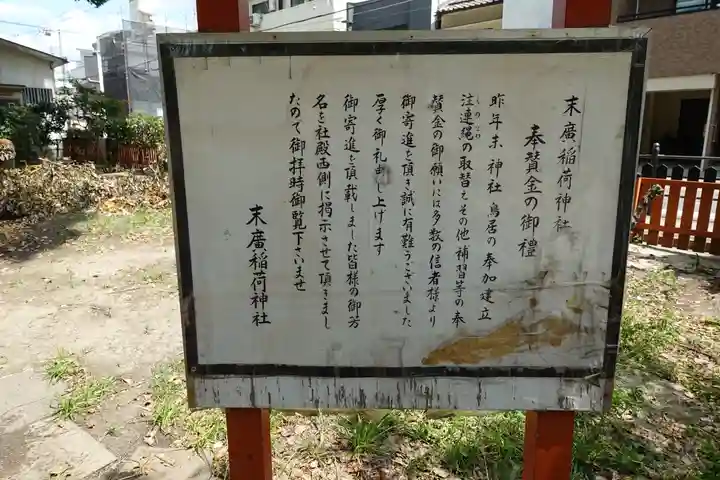 末廣稲荷神社
奉賛金の御禮
昨年末神社鳥居の奉加建立
注連縄の取替えその他補習等の奉
賛金の御願いには多数の信者様より
御寄進を頂き誠に有難うございました
厚く御礼申し上げます
御寄進を頂戴しました皆様の御芳
名を社殿西側に掲示させて頂きまし
たので御拝時御覧下さいませ
末廣稲荷神社